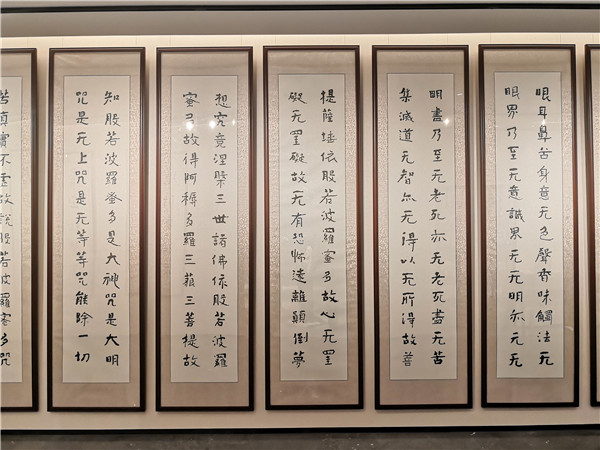 眼耳鼻舌身意无色聲香味觸法无
眼界乃至无意識界无无明亦无无
明盡乃至无老死亦无老死盡无苦
集滅道无智亦无得以无所得故菩
提薩埵依般若波羅蜜多故心无罣
礙无罣礙故无有恐怖遠離顛倒夢
想究竟涅槃三世諸佛依般若波羅
蜜多故得阿耨多羅三藐三菩提故
知般若波羅蜜多是大神咒是大明
咒是无上咒是无等等咒能除一切
苦真實不虛故說般若波羅蜜多咒